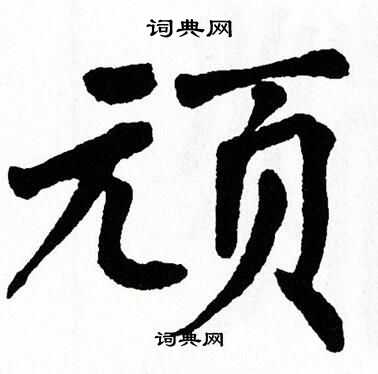 词典网
顽
词典网